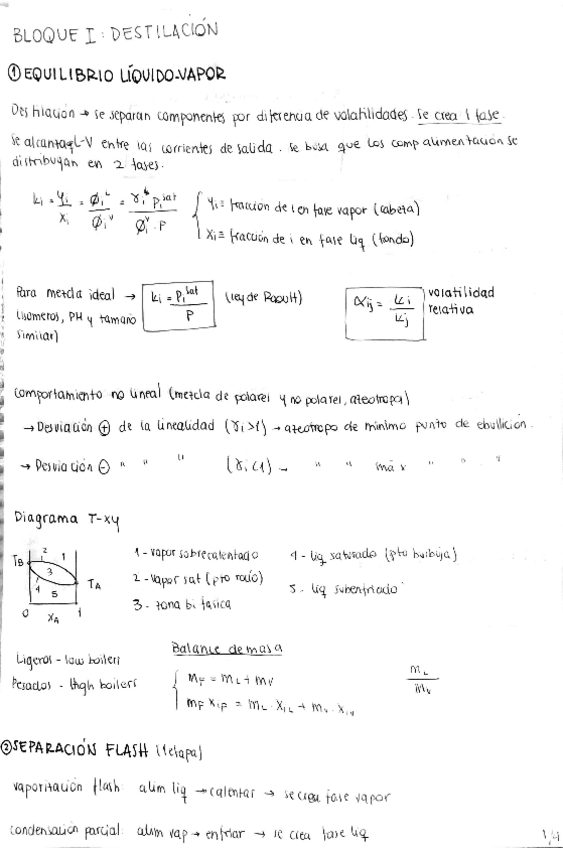 BLOQUE I: DESTILACIÓN
① EQUILIBRIO LÍQUIDO-VAPOR
Destilación → se separan componentes por diferencia de volatilidades. Se crea 1 fase.
Se alcanza eq L-V entre las corrientes de salida. Se busca que los comp alimentación se
distribuyan en 2 fases.
ki = yi/xi = Øi^L/Øi^V = γi^L Pi^sat/Øi^V · P { yi ≡ fracción de i en fase vapor (cabeza)
xi ≡ fracción de i en fase liq (fondo)
Para mezcla ideal → ki = Pi^sat/P (ley de Raoult) αij = ki/kj volatilidad
(isómeros, PM y tamaño relativa
similar)
Comportamiento no lineal (mezcla de polares y no polares, azeotropo)
→ Desviación ⊕ de la linealidad (γi>1) → azeotropo de mínimo punto de ebullición.
→ Desviación ⊖ " " " (γi<1) → " " máx " " "
Diagrama T-xy
TB 2 1 3 4 5 TA
0 XA 1
1 - vapor sobrecalentado 4 - liq saturado (pto burbuja)
2 - vapor sat (pto rocío) 5 - liq subenfriado
3 - zona bifásica
Ligeros - low boilers Balance de masa
Pesados - High boilers { mF = mL + mV mL/mV
mF xiF = mL · xiL + mV · xiV
② SEPARACIÓN FLASH (1 etapa)
vaporización flash: alim liq → calentar → se crea fase vapor
condensación parcial: alim vap → enfriar → se crea fase liq
1/4